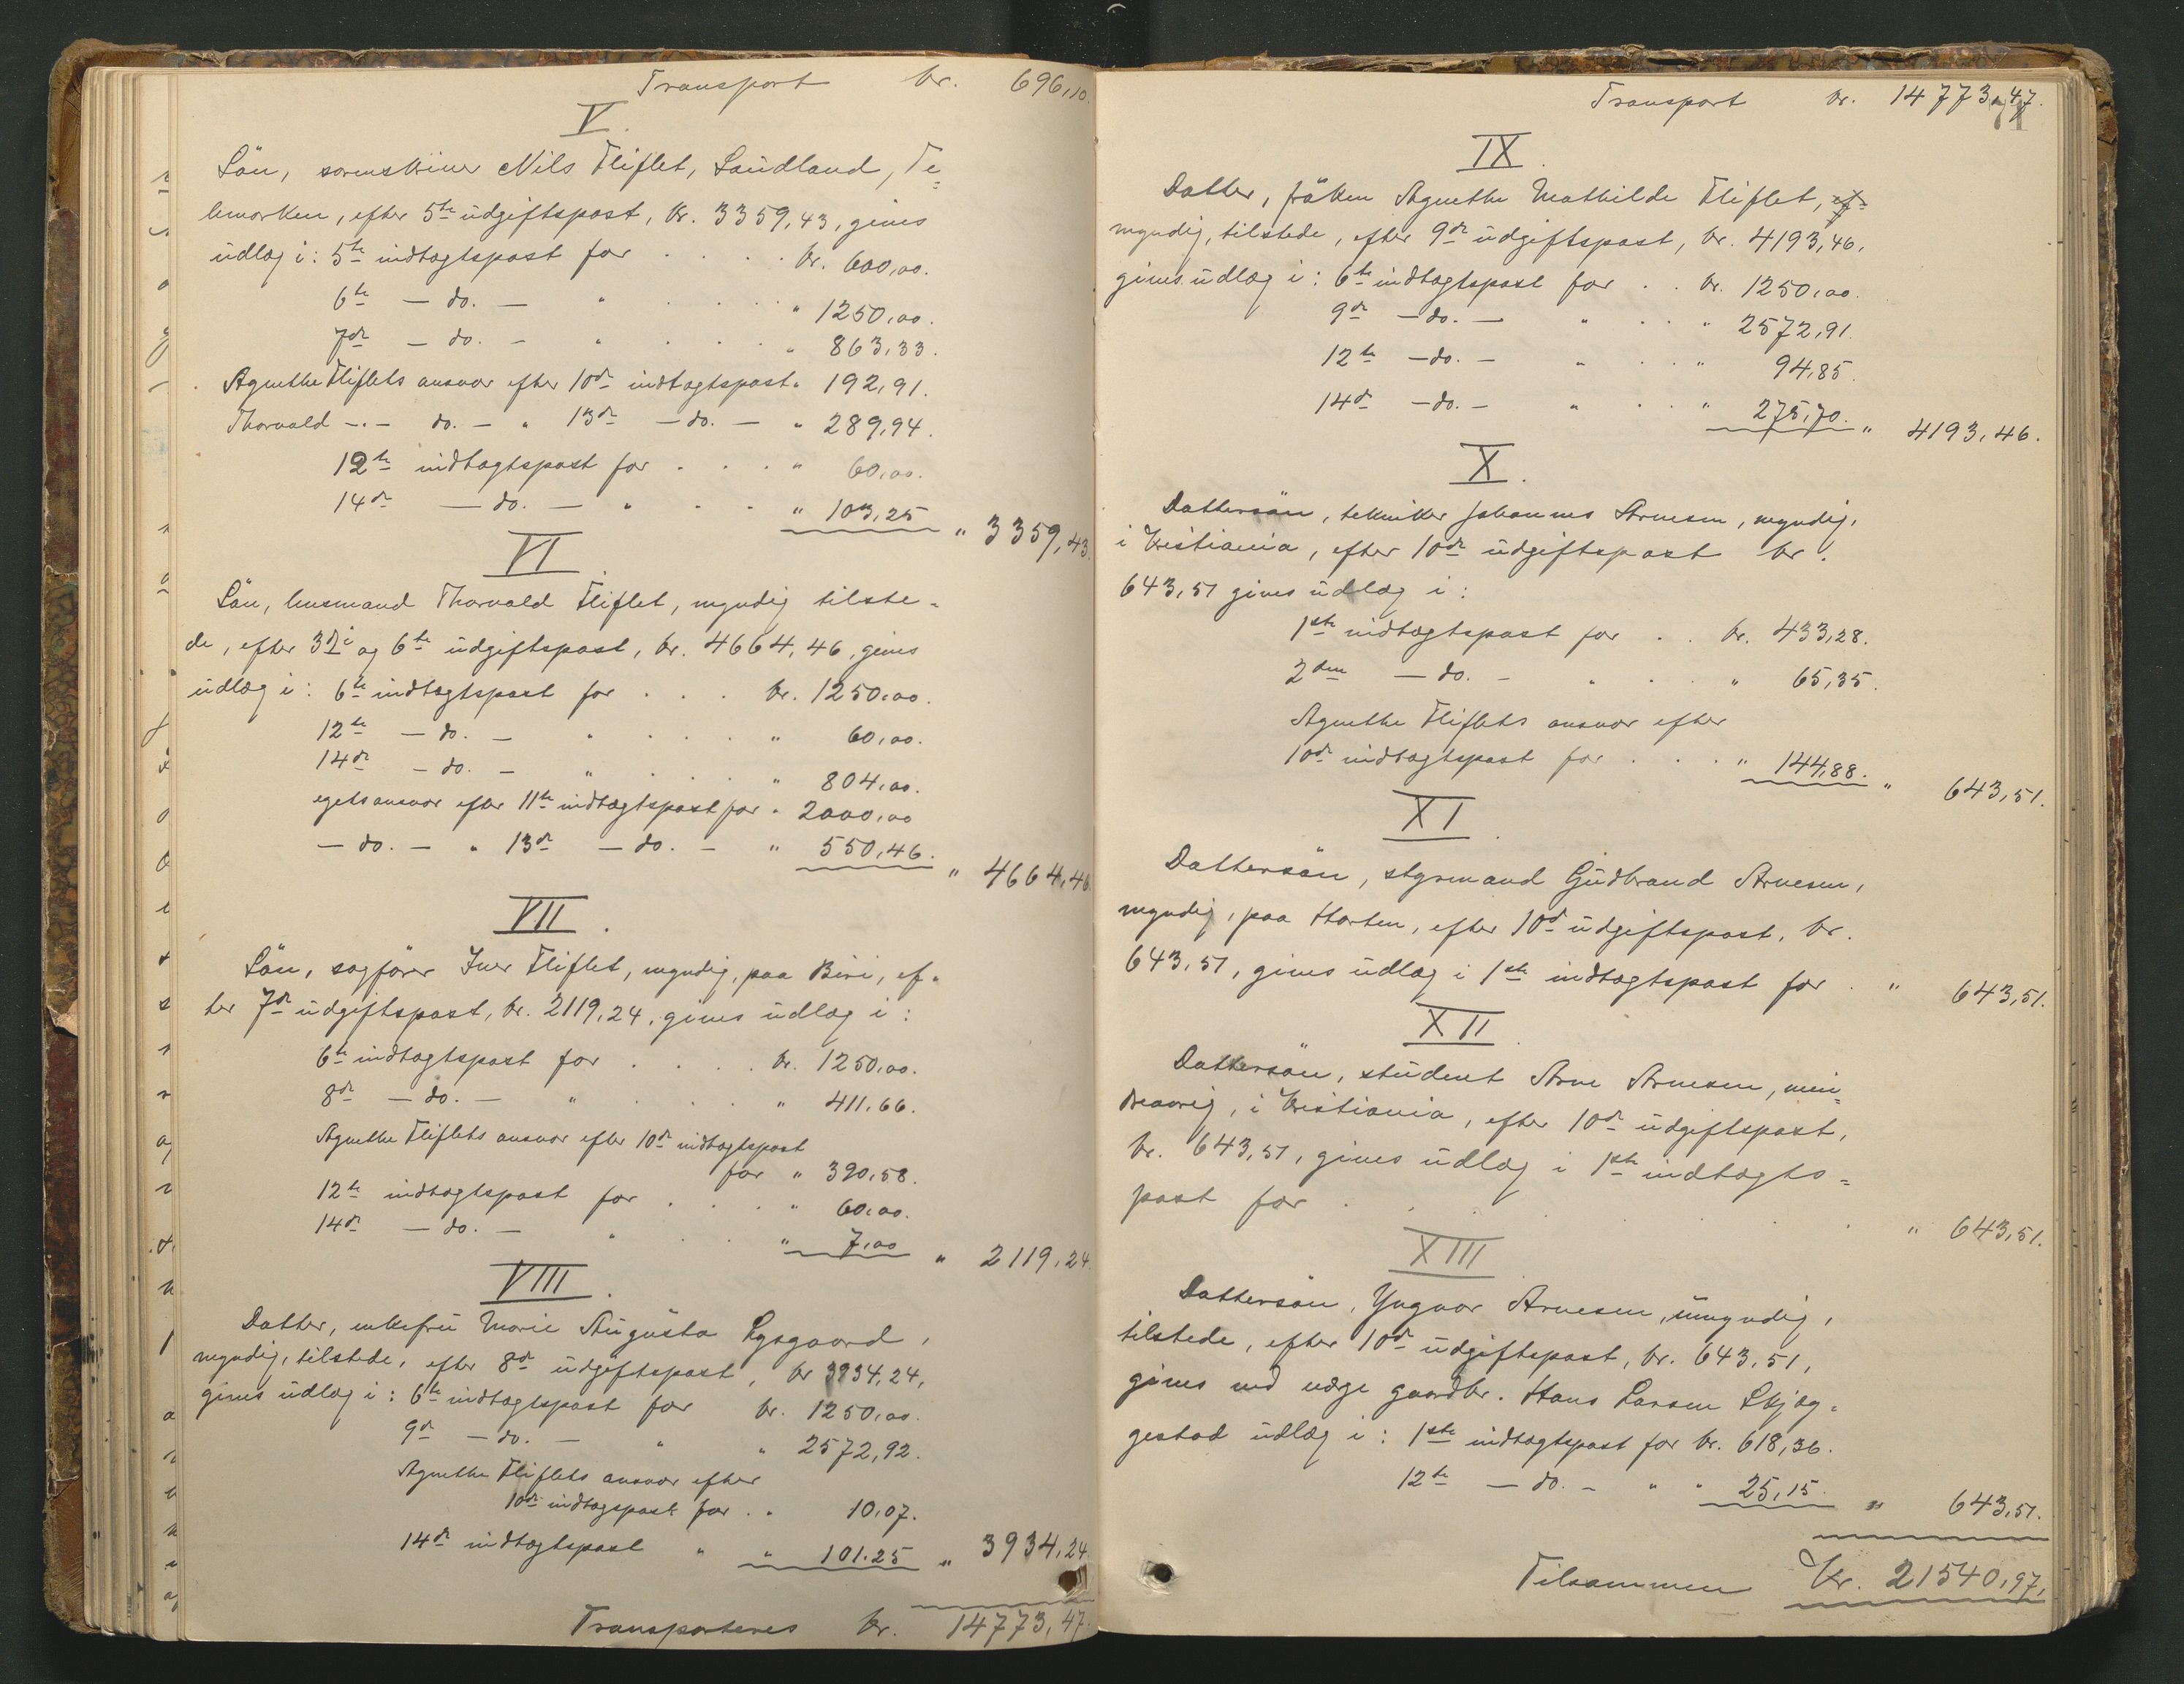 Transport kr. 696,10.
V.
Sön, sorenskriver Nils Fliflet, Laudland, Te=
lemarken, efter 5te üdgiftspost, kr. 3359,43, gives
üdlæg i: 5te indtægtspost for . . . . kr. 600,00.
6te — do. — " . . . . " 1250,00.
7de — do. — " . . . . " 863,33.
Agnethe Fliflets ansvar efter 10de indtægtspost " 192,91.
Thorvald —.— do. — " 13de — do. — " 289,94.
12te indtægtspost for . . . " 60,00.
14de — do. — " . . " 103,25 " 3359,43.
VI.
Sön, husmand Thorvald Fliflet, myndig tilste-
de, efter 3die og 6te üdgiftspost, kr. 4664,46, gives
üdlæg i: 6te indtægtspost for . . . kr. 1250,00.
12te — do. — " . . . . " 60,00.
14de — do. — " . . . . " 804,00.
egets ansvar efter 11te indtægtspost for " 2000,00
— do. — " 13de — do. — " 550,46. " 4664,46
VII.
Sön, sagförer Iver Fliflet, myndig, paa Biri, ef-
ter 7de üdgiftspost, kr. 2119,24, gives üdlæg i:
6te indtægtspost for . . . . kr. 1250,00.
8de — do. — " . . . . " 411,66.
Agnethe Fliflets ansvar efter 10de indtægtspost
for " 390,58.
12te indtægtspost for . . . . " 60,00.
14de — do. — " . . . " 7,00 " 2119,24.
VIII.
Datter, enkefrü Marie Aügüsta Lysgaard,
myndig, tilstede, efter 8de üdgiftspost, kr 3934,24,
gives üdlæg i: 6te indtægtspost for kr. 1250,00.
9de — do. — " " 2572,92.
Agnethe Fliflets ansvar efter
10de indtægspost for . . 10,07.
14de indtægtspost " " 101.25 " 3934,24
Transporteres kr. 14773,47.
Transport kr. 14773,47.
71
IX.
Datter, fröken Agnethe Mathilde Fliflet,
myndig, tilstede, efter 9de üdgiftspost, kr. 4193,46,
gives üdlæg i: 6te indtægtspost for . . kr. 1250,00.
9de — do. — " . . " 2572,91.
12te — do. — " . . " 94,85.
14de — do. — " . . " 275,70. " 4193,46.
X.
Dattersön, tekniker Johannes Arnesen, myndig,
i Kristiania, efter 10de üdgiftspost kr.
643,51 gives üdlæg i:
1ste indtægtspost for . . kr. 433,28.
2den — do. — " . . " 65,35.
Agnethe Fliflets ansvar efter
10de indtægtspost for . . . " 144,88. " 643,51.
XI.
Dattersön, styrmand Güdbrand Arnesen,
myndig, paa Horten, efter 10de üdgiftspost, kr.
643,51, gives üdlæg i 1ste indtægtspost for . " 643,51.
XII.
Dattersön, stüdent Arne Arnesen, min=
dreaarig, i Kristiania, efter 10de üdgiftspost,
kr. 643,51, gives üdlæg i 1ste indtægts=
post for . . . . . . " 643,51.
XIII
Dattersön, Yngvar Arnesen, ümyndig,
tilstede, efter 10de üdgiftspost, kr. 643,51,
gives ved værge gaardbr. Hans Larsen Skjæg=
gestad üdlæg i: 1ste indtægtspost for kr. 618,36.
12te — do. — " " 25,15. " 643,51.
Tilsammen Kr. 21540,97.